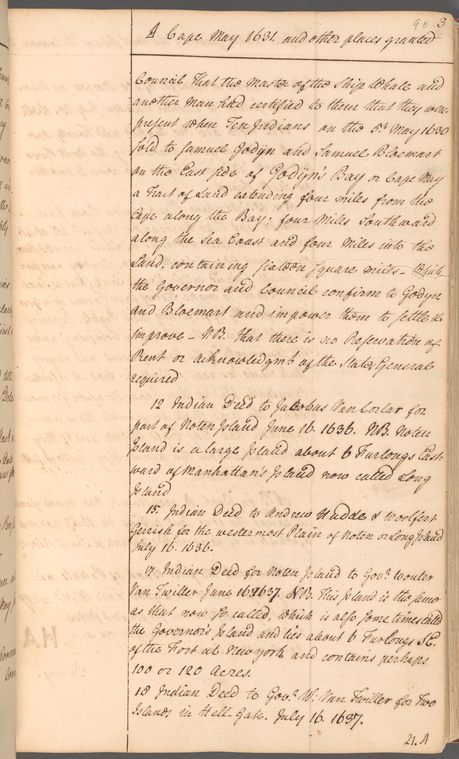 90 3
A Cape May 1631. and other places granted
Council That the Master of the Ship Whale and
another man had certified to them that they were
present when Ten Indians on the 5th May 1630
sold to Samuel Godyn and Samuel Bloemart
on the East side of Godyn's Bay or Cape May
a Tract of Land extending four miles from the
Cape along the Bay; four Miles Southward
along the Sea Coast and four Miles into the
Land, containing sixteen square miles – Which
the Governor and Council confirm to Godyn
and Bloemart and impower them to settle &
improve – NB. that there is no Reservation of
Rent or acknowledgmt of the States General
required
12 Indian Deed to Jacobus Van Corlar for
part of Noten Island June 16. 1636. NB. Noten
Island is a large Island about 6 Furlongs East
ward of Manhattan's Island now called Long
Island
15. Indian Deed to Andrew Hudde & Wolfert
Gerish for the westermost Plain of Noten or Long Island
July 16. 1636.
17 Indian Deed for Noten Island to Govr. Wouter
Van Twiller June 16 1637. NB. This Island is the same
as that now so called, which is also some times called
the Governor's Island and lies about 6 Furlongs SE.
of the Fort at New york and contains perhaps
100 or 120 Acres.
18 Indian Deed to Govr. W. Van Twiller for Two
Islands in Hell-Gate. July 16. 1637.
21. A